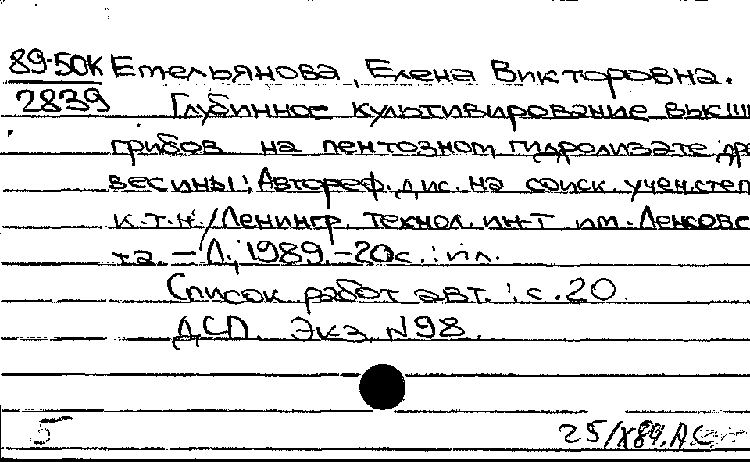 89-50К Емельянова, Елена Викторовна.
2839 Глубинное культивирование высш
грибов на пентозном гидролизате дре
весины: Автореф. дис. на соиск. учен. степ
к.т.н./Ленингр. технол. ин-т им. Ленсове
та. - Л., 1989. - 20с.: ил.
Список работ авт.: с. 20.
ДСП. Экз. N98.
5
25/X89.